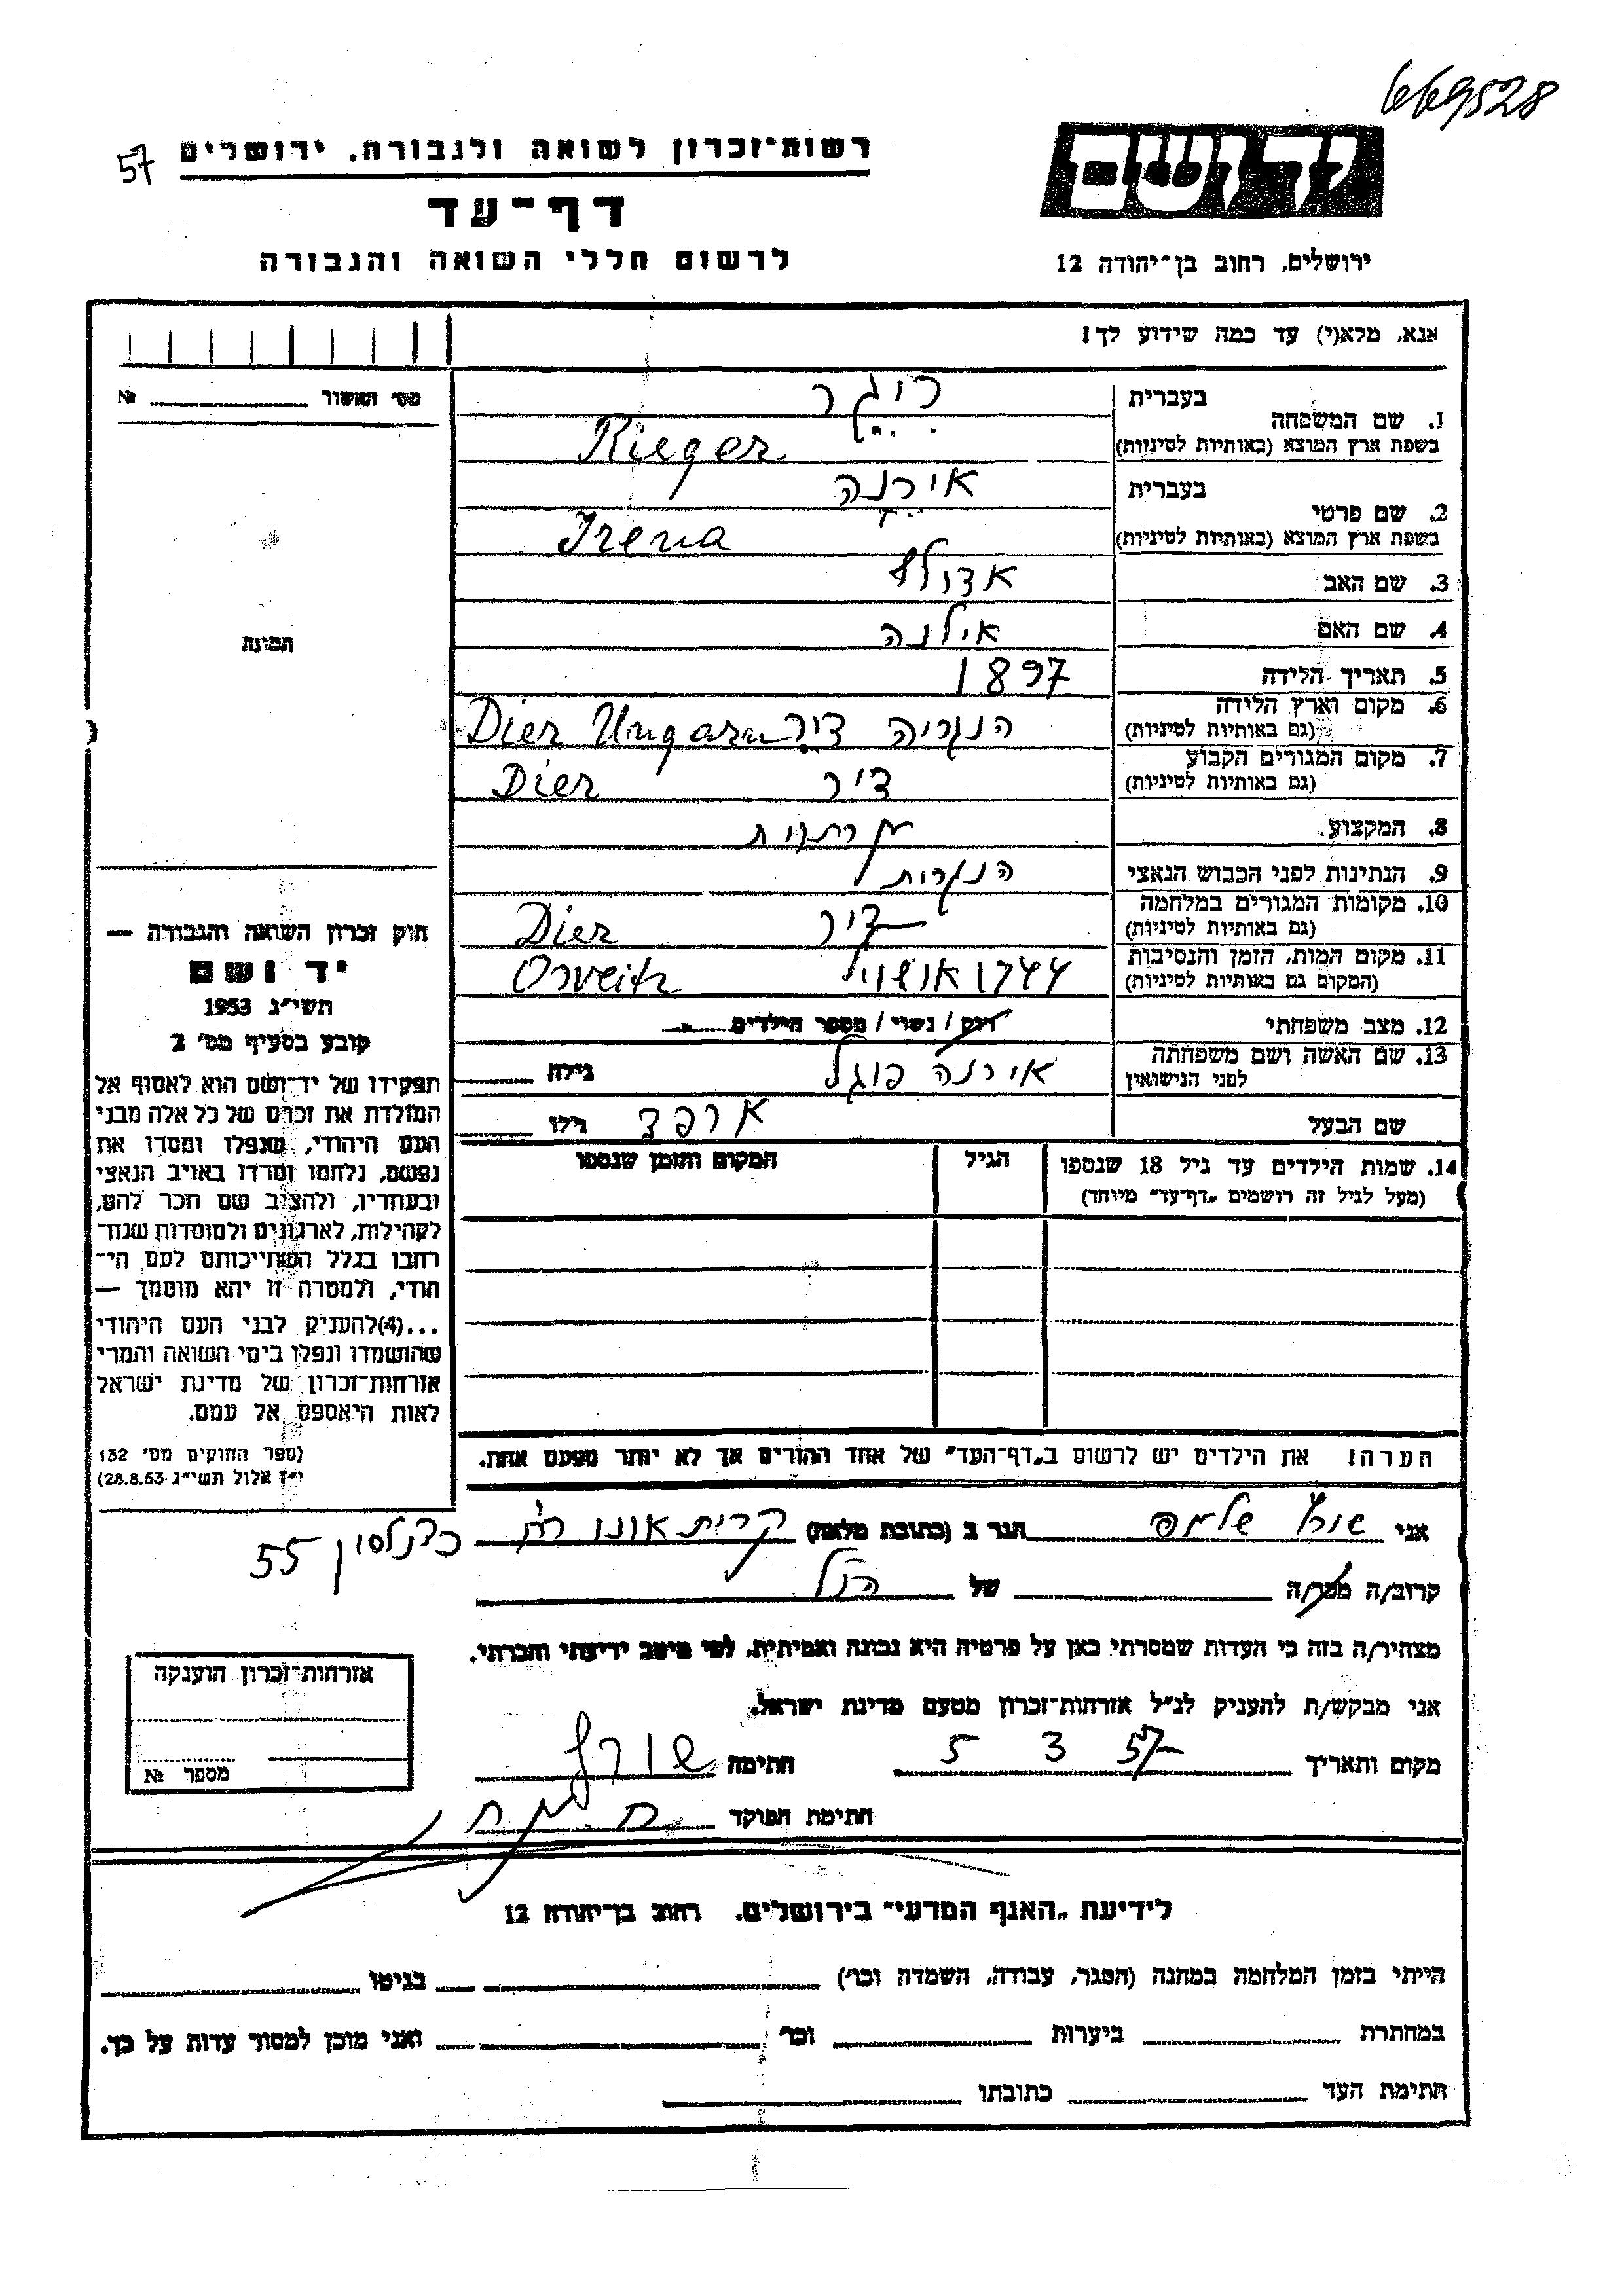 669528
57
רשות־זכרון לשואה ולגבורה. ירושלים
דף־עד
לרשום חללי השואה והגבורה
ידושם
ירושלים, רחוב בן־יהודה 12
אנא, מלא(י) עד כמה שידוע לך!
מס׳ האשור № 
1. שם המשפחה
בעברית
בשפת ארץ המוצא (באותיות לטיניות)
Rieger
2. שם פרטי
בעברית אירנה
בשפת ארץ המוצא (באותיות לטיניות)
Irena
3. שם האב אדולף
4. שם האם אילנה
5. תאריך הלידה 1897
6. מקום וארץ הלידה
(גם באותיות לטיניות)
הנגריה דיר Dier
7. מקום המגורים הקבוע
(גם באותיות לטיניות)
דיר Dier
8. המקצוע
9. הנתינות לפני הכבוש הנאצי
10. מקומות המגורים במלחמה
(גם באותיות לטיניות)
דיר Dier
11. מקום המות, הזמן והנסיבות
(המקום גם באותיות לטיניות)
1944
12. מצב משפחתי רווק / נשוי / מספר הילדים
13. שם האשה ושם משפחתה
לפני הנישואין
אירנה פוגל גילה
שם הבעל ארפד גילו
14. שמות הילדים עד גיל 18 שנספו
(מעל לגיל זה רושמים „דף־עד״ מיוחד)
הגיל
המקום והזמן שנספו
הערה! את הילדים יש לרשום ב„דף־העד״ של אחד ההורים אך לא יותר מפעם אחת.
תמונה
חוק זכרון השואה והגבורה —
יד ושם
תשי״ג 1953
קובע בסעיף מס׳ 2
תפקידו של יד־ושם הוא לאסוף אל
המולדת את זכרם של כל אלה מבני
העם היהודי, שנפלו ומסרו את
נפשם, נלחמו ומרדו באויב הנאצי
ובעוזריו, ולהציב שם וזכר להם,
לקהילות, לארגונים ולמוסדות שנח־
רבו בגלל השתייכותם לעם הי־
הודי, ולמטרה זו יהא מוסמך —
...(4)להעניק לבני העם היהודי
שהושמדו ונפלו בימי השואה והמרי
אזרחות־זכרון של מדינת ישראל
לאות היאספם אל עמם.
(ספר החוקים מס׳ 132
י״ז אלול תשי״ג 28.8.53)
אני הגר ב (כתובת מלאה) קרית אונו רח׳
55
קרוב/ה מכר/ה של הנ״ל
מצהיר/ה בזה כי העדות שמסרתי כאן על פרטיה היא נכונה ואמיתית, לפי מיטב ידיעתי והכרתי.
אני מבקש/ת להעניק לנ״ל אזרחות־זכרון מטעם מדינת ישראל.
מקום ותאריך 5 3 57 חתימה
חתימת הפוקד
אזרחות־זכרון הוענקה
מספר №
לידיעת „האגף המדעי״ בירושלים. רחוב בן־יהודה 12
הייתי בזמן המלחמה במחנה (הסגר, עבודה, השמדה וכו׳) בגיטו
במחתרת ביערות וכו׳ ואני מוכן למסור עדות על כך.
חתימת העד כתובתו